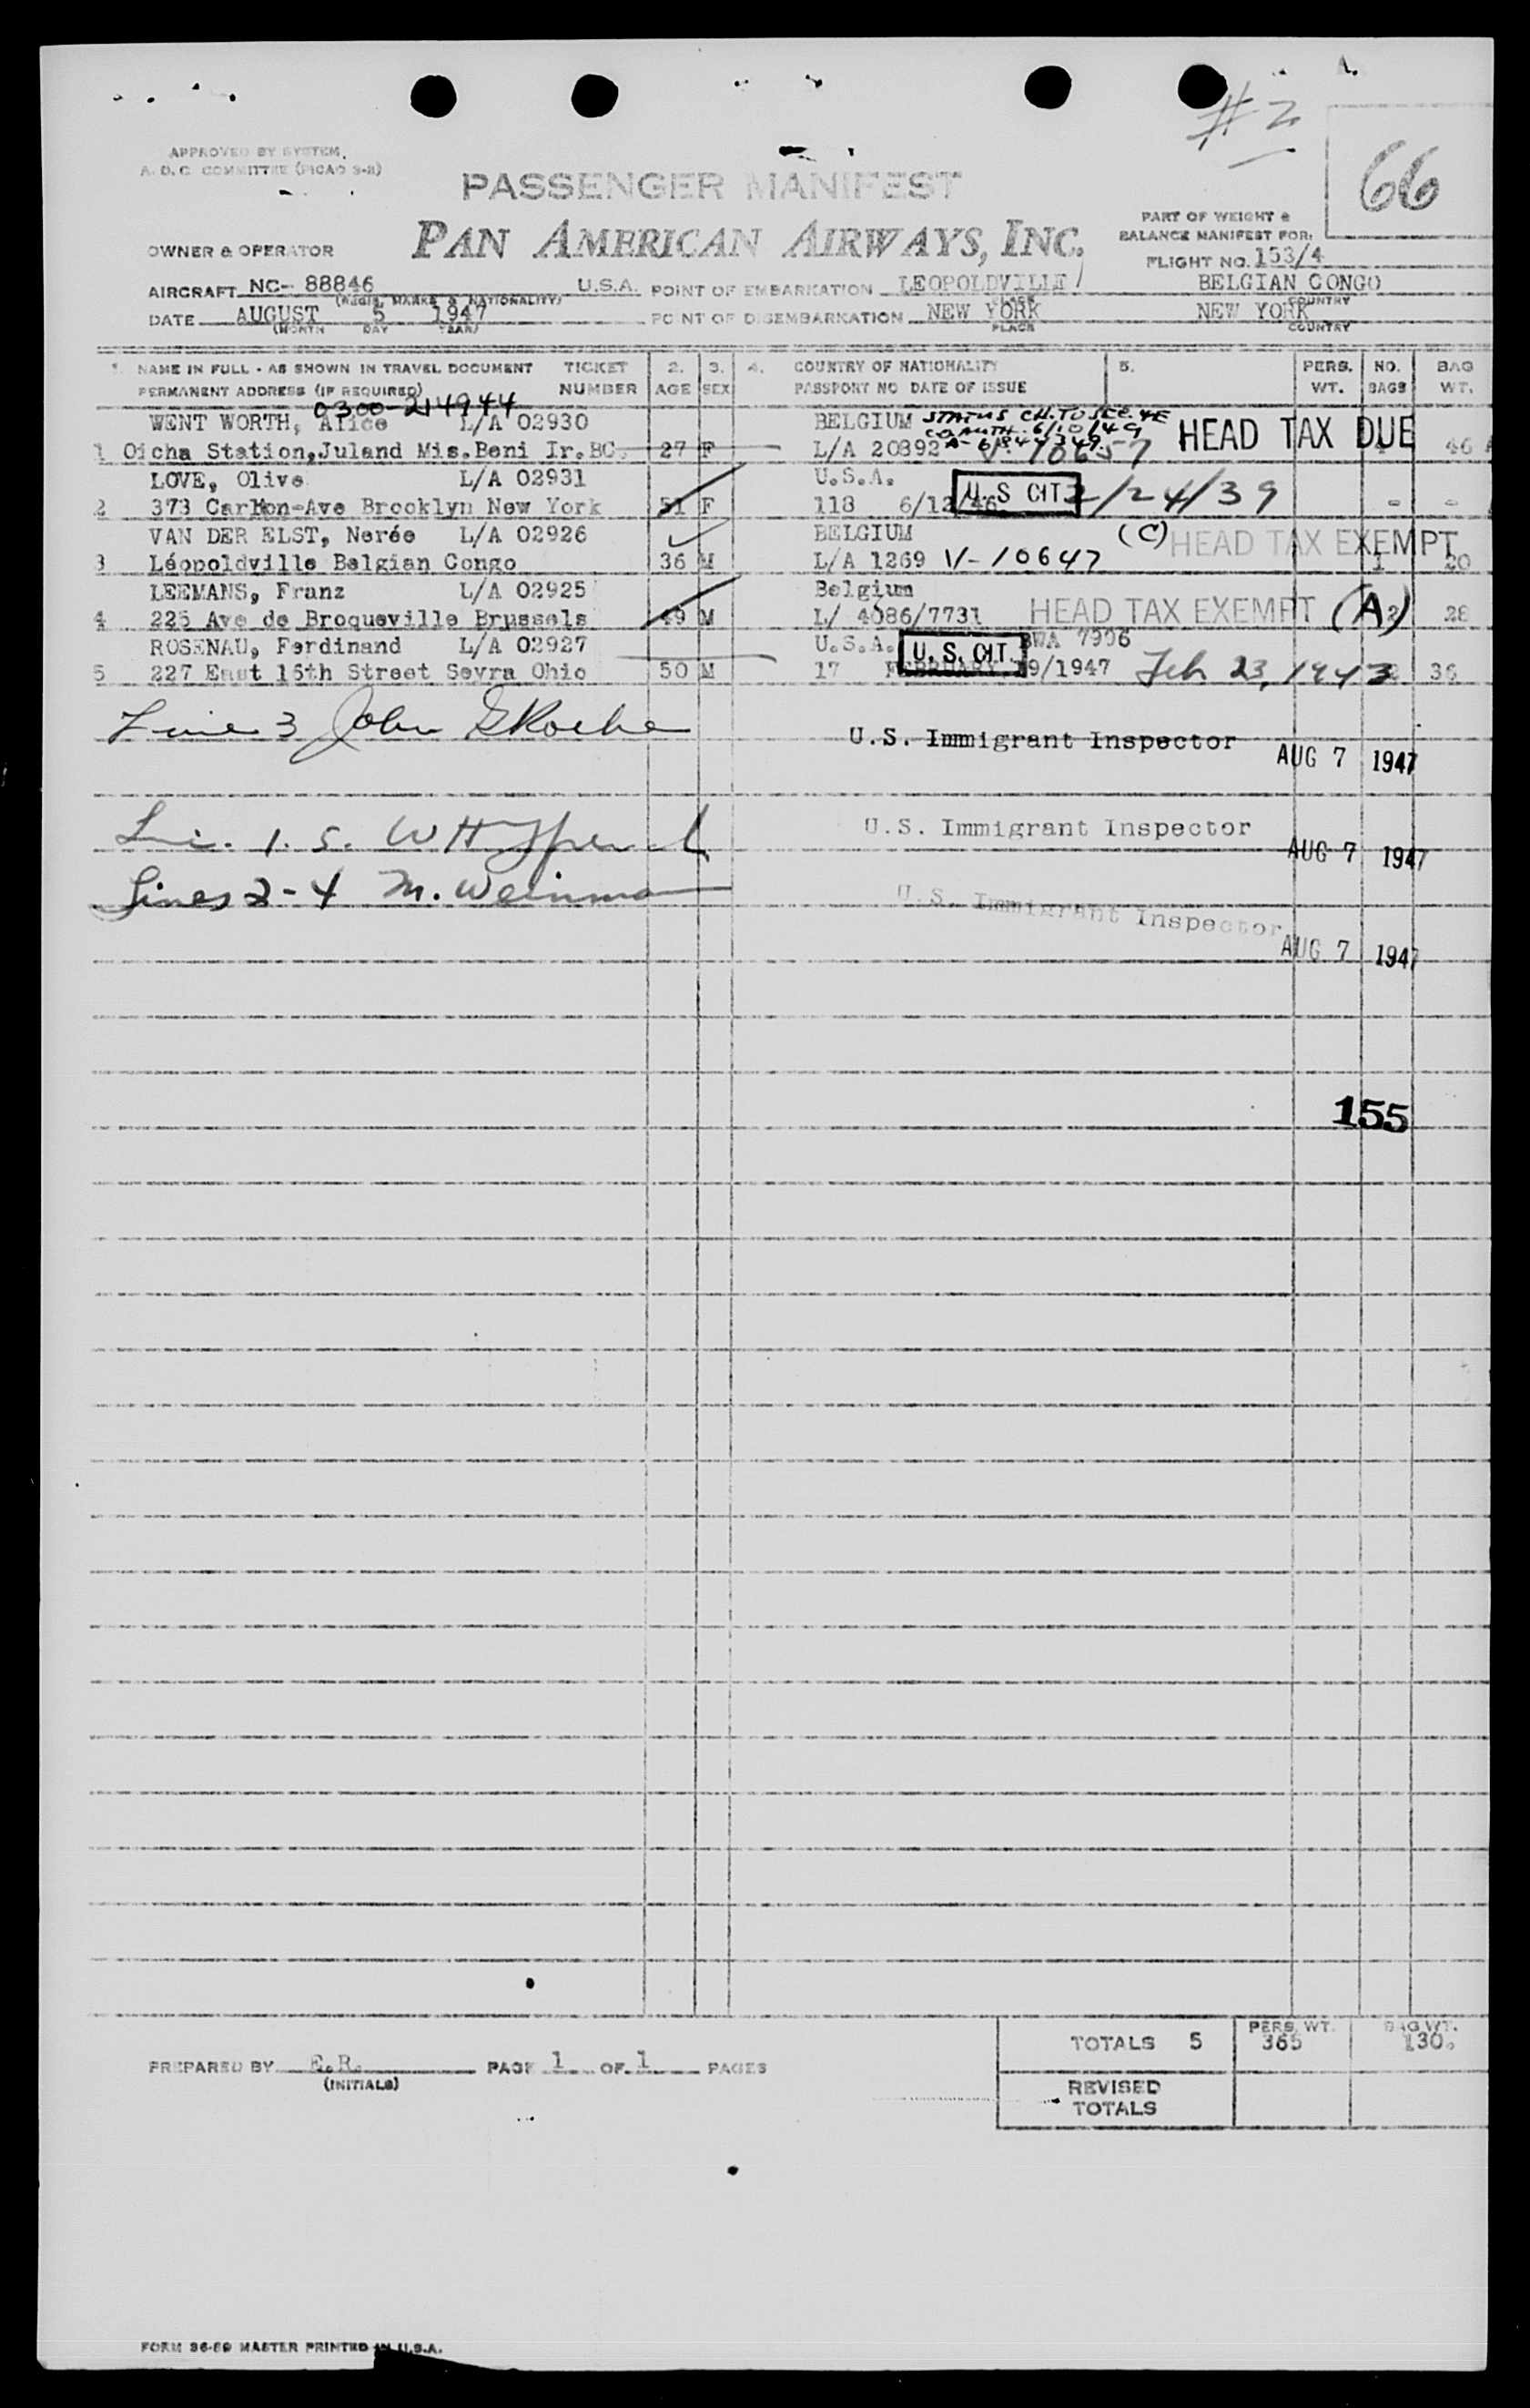 #2
66
APPROVED BY SYSTEM
A. D. C. COMMITTEE (PICAO 9-8)
PASSENGER MANIFEST
PAN AMERICAN AIRWAYS, INC.
PART OF WEIGHT &
BALANCE MANIFEST FOR:
OWNER & OPERATOR
FLIGHT NO. 153/4
AIRCRAFT NC- 88846 U.S.A. POINT OF EMBARKATION LEOPOLDVILLE BELGIAN CONGO
(REGIS. MARKS & NATIONALITY) PLACE COUNTRY
DATE AUGUST 5 1947 POINT OF DISEMBARKATION NEW YORK NEW YORK
(MONTH DAY YEAR) PLACE COUNTRY
1. NAME IN FULL - AS SHOWN IN TRAVEL DOCUMENT TICKET 2. 3. 4. COUNTRY OF NATIONALITY 5. PERS. NO. BAG
PERMANENT ADDRESS (IF REQUIRED) NUMBER AGE SEX PASSPORT NO DATE OF ISSUE WT. BAGS WT.
0300-214944
WENT WORTH, Alice L/A 02930 BELGIUM STATUS CH. TO SEC. 4E
CO AUTH. 6/10/49 HEAD TAX DUE
1 Oicha Station,Juland Mis.Beni Ir.BC. 27 F L/A 20392 V-10657 46
LOVE, Olive L/A 02931 U.S.A. U.S CIT 2/24/39
2 373 Carlton-Ave Brooklyn New York 51 F 118 6/12/46 - -
VAN DER ELST, Nerée L/A 02926 BELGIUM (C) HEAD TAX EXEMPT
3 Léopoldville Belgian Congo 36 M L/A 1269 V-10647 1 20
LEEMANS, Franz L/A 02925 Belgium
4 225 Ave de Broqueville Brussels 49 M L/ 4086/7731 HEAD TAX EXEMPT (A) 2 28
ROSENAU, Ferdinand L/A 02927 U.S.A. U.S. CIT. BWA 7906
5 227 East 15th Street Sevra Ohio 50 M 17 FEBRUARY 19/1947 Feb 23, 1943 36
Line 3 John E Roche U.S. Immigrant Inspector AUG 7 1947
Li. 1. 5. W H U.S. Immigrant Inspector AUG 7 1947
Lines 2-4 M. Weinman U.S. Immigrant Inspector AUG 7 1947
155
TOTALS 5 PERS. WT. 365 BAG WT. 130.
PREPARED BY E.R. PAGE 1 OF 1 PAGES
(INITIALS)
REVISED
TOTALS
FORM 36-89 MASTER PRINTED IN U.S.A.